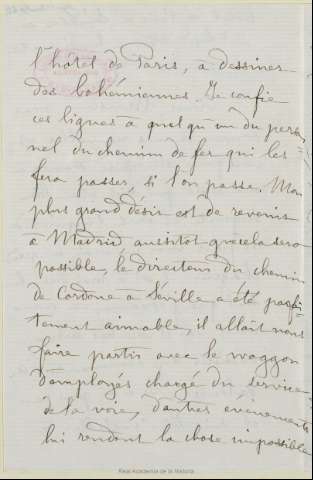 l'hôtel de Paris, a dessiner
des bohémiennes. Je confie
ces lignes a quelqu'un du person
nel du chemin de fer qui les
fera passer, si l'on passe. Mon
plus grand désir est de revenir
a Madrid aussitot que cela sera
possible, le directeur du chemin
de Cordoue à Séville a été parfai
tement aimable, il allait nous
faire partir avec le waggon
d'employés chargé du service
de la voie, d'autres évènements
lui rendent la chose impossible
Real Academia de la Historia